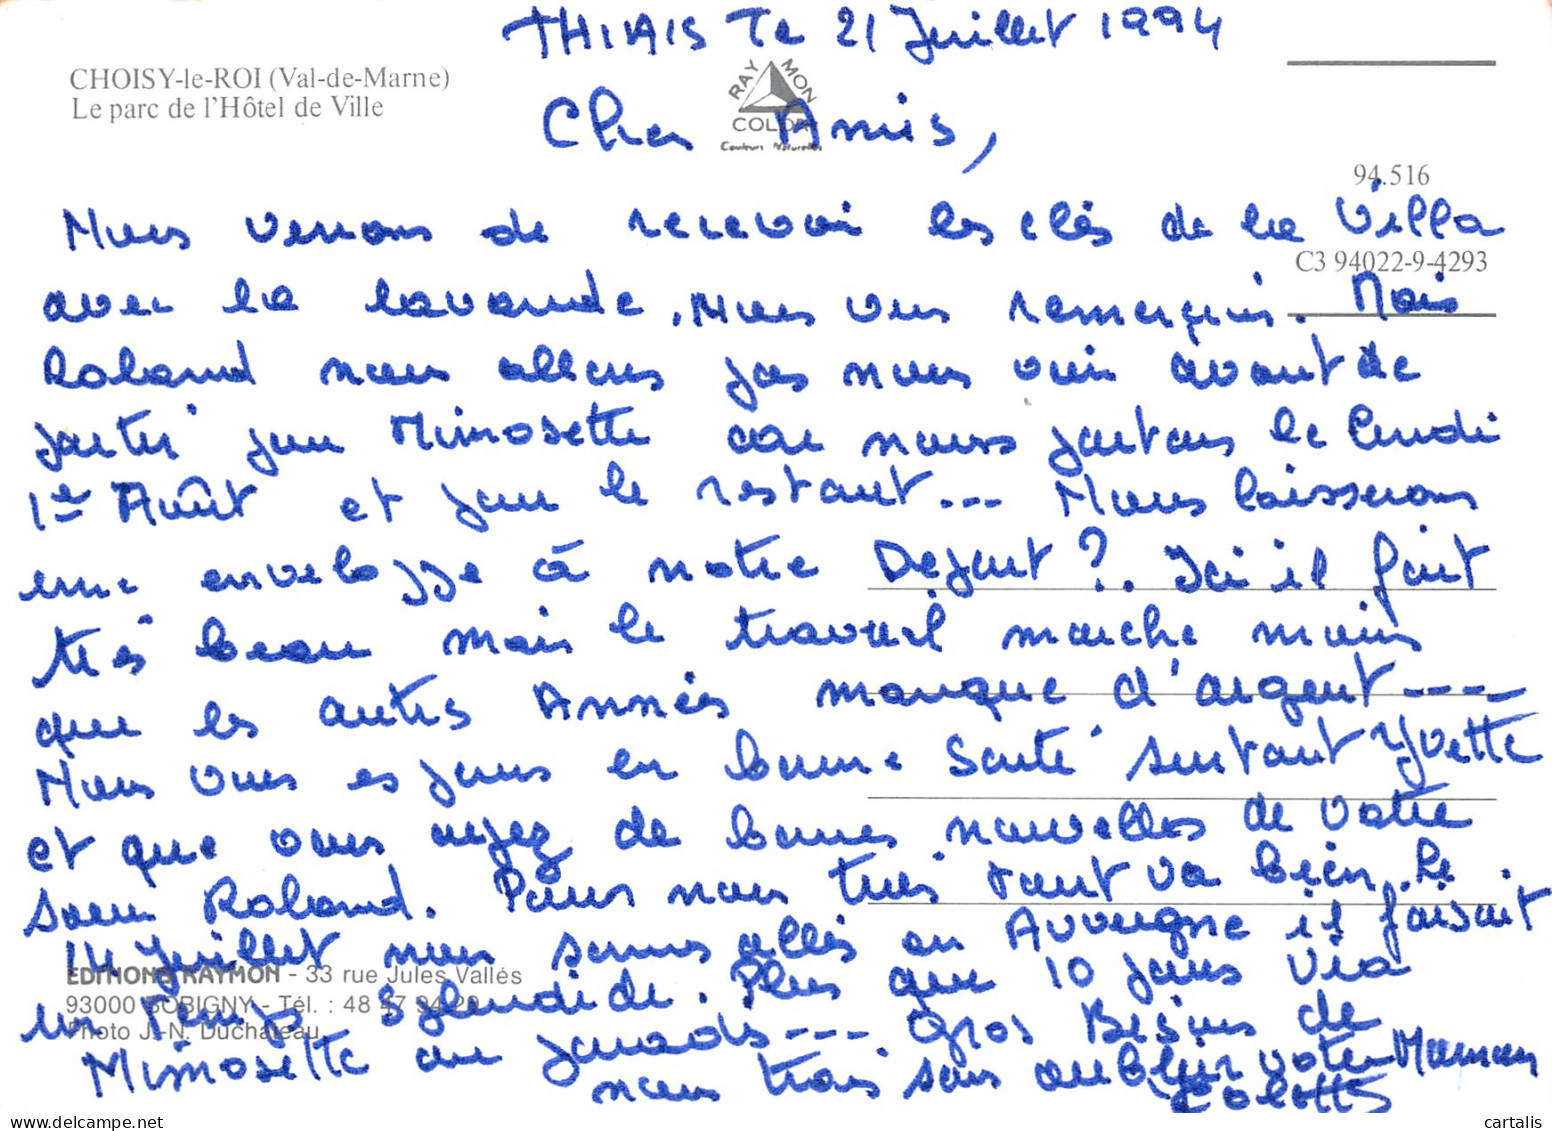 THIAIS Le 21 Juillet 1994
CHOISY-le-ROI (Val-de-Marne)
Le parc de l'Hôtel de Ville
RAYMON
COLOR
Couleurs Naturelles
Chers Amis,
94.516
Nous venons de recevoir les clés de la Villa
C3 94022-9-4293
avec la lavande. Nous vous remercions. Mais
Roland nous allons pas nous voir avant de
partir pour Mimosette car nous partons le lundi
1er Août et pour le restant --- Nous laisserons
une enveloppe à notre Depart ?. Ici il fait
très beau mais le travail marche moins
que les autres Années manque d'argent ----
Nous vous espérons en bonne Santé surtout Yvette
et que vous ayez de bonnes nouvelles de votre
soeur Roland. Pour nous trois tout va bien. Le
14 Juillet nous sommes allés en Auvergne il faisait
EDITIONS RAYMON - 33 rue Jules Vallés
93000 BOBIGNY - Tél. : 48 47 94 20
Photo J.-N. Duchateau
un Temps Splendide. Plus que 10 jours Via
Mimosette au paradis --- Gros Bisous de
nous trois sans oublier votre Maman
Colette